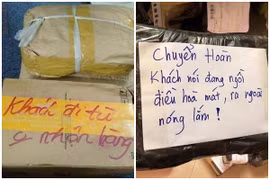 Khách đi tù
nhận hàng
Chuyển Hoàn
Khách nói đang ngồi
điều hoà mát, ra ngoài
nóng lắm !